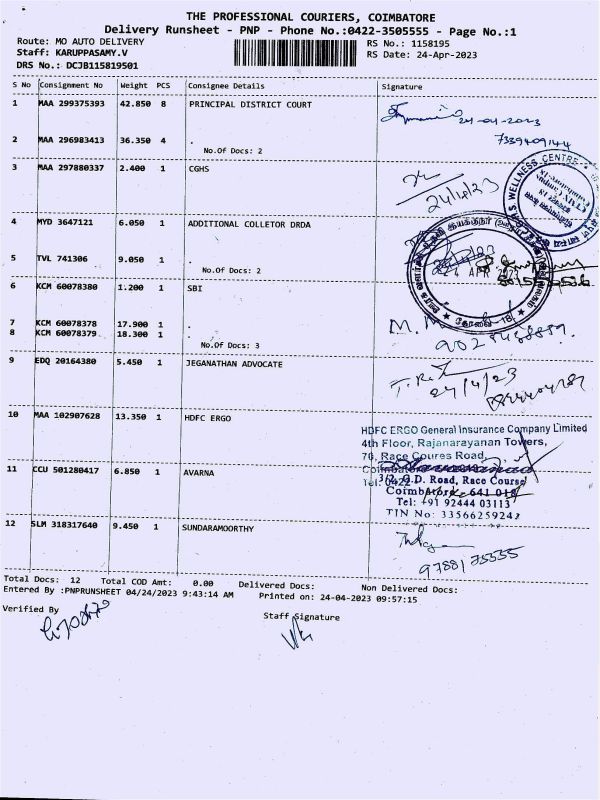 THE PROFESSIONAL COURIERS, COIMBATORE
Delivery Runsheet - PNP - Phone No.:0422-3505555 - Page No.:1
Route: MO AUTO DELIVERY
RS No.: 1158195
Staff: KARUPPASAMY.V
RS Date: 24-Apr-2023
DRS No.: DCJB115819501
S No Consignment No Weight PCS Consignee Details Signature
1 MAA 299375393 42.850 8 PRINCIPAL DISTRICT COURT
24-04-2023
7339409144
2 MAA 296983413 36.350 4 .
No.Of Docs: 2
3 MAA 297880337 2.400 1 CGHS
24/4/23
WELLNESS CENTRE
4 MYD 3647121 6.050 1 ADDITIONAL COLLETOR DRDA
5 TVL 741306 9.050 1 .
No.Of Docs: 2
6 KCM 60078380 1.200 1 SBI
7 KCM 60078378 17.900 1
8 KCM 60078379 18.300 1 .
No.Of Docs: 3
9 EDQ 20164380 5.450 1 JEGANATHAN ADVOCATE
24/4/23
10 MAA 102907628 13.350 1 HDFC ERGO
HDFC ERGO General Insurance Company Limited
4th Floor, Rajanarayanan Towers,
70, Race Coures Road,
11 CCU 501280417 6.850 1 AVARNA
Tel: 0422
G.D. Road, Race Course
Coimbatore - 641 018
Tel: +91 92444 03113
TIN No: 33566259242
12 SLM 318317640 9.450 1 SUNDARAMOORTHY
97881 75555
Total Docs: 12 Total COD Amt: 0.00 Delivered Docs: Non Delivered Docs:
Entered By :PNPRUNSHEET 04/24/2023 9:43:14 AM Printed on: 24-04-2023 09:57:15
Verified By
Staff Signature